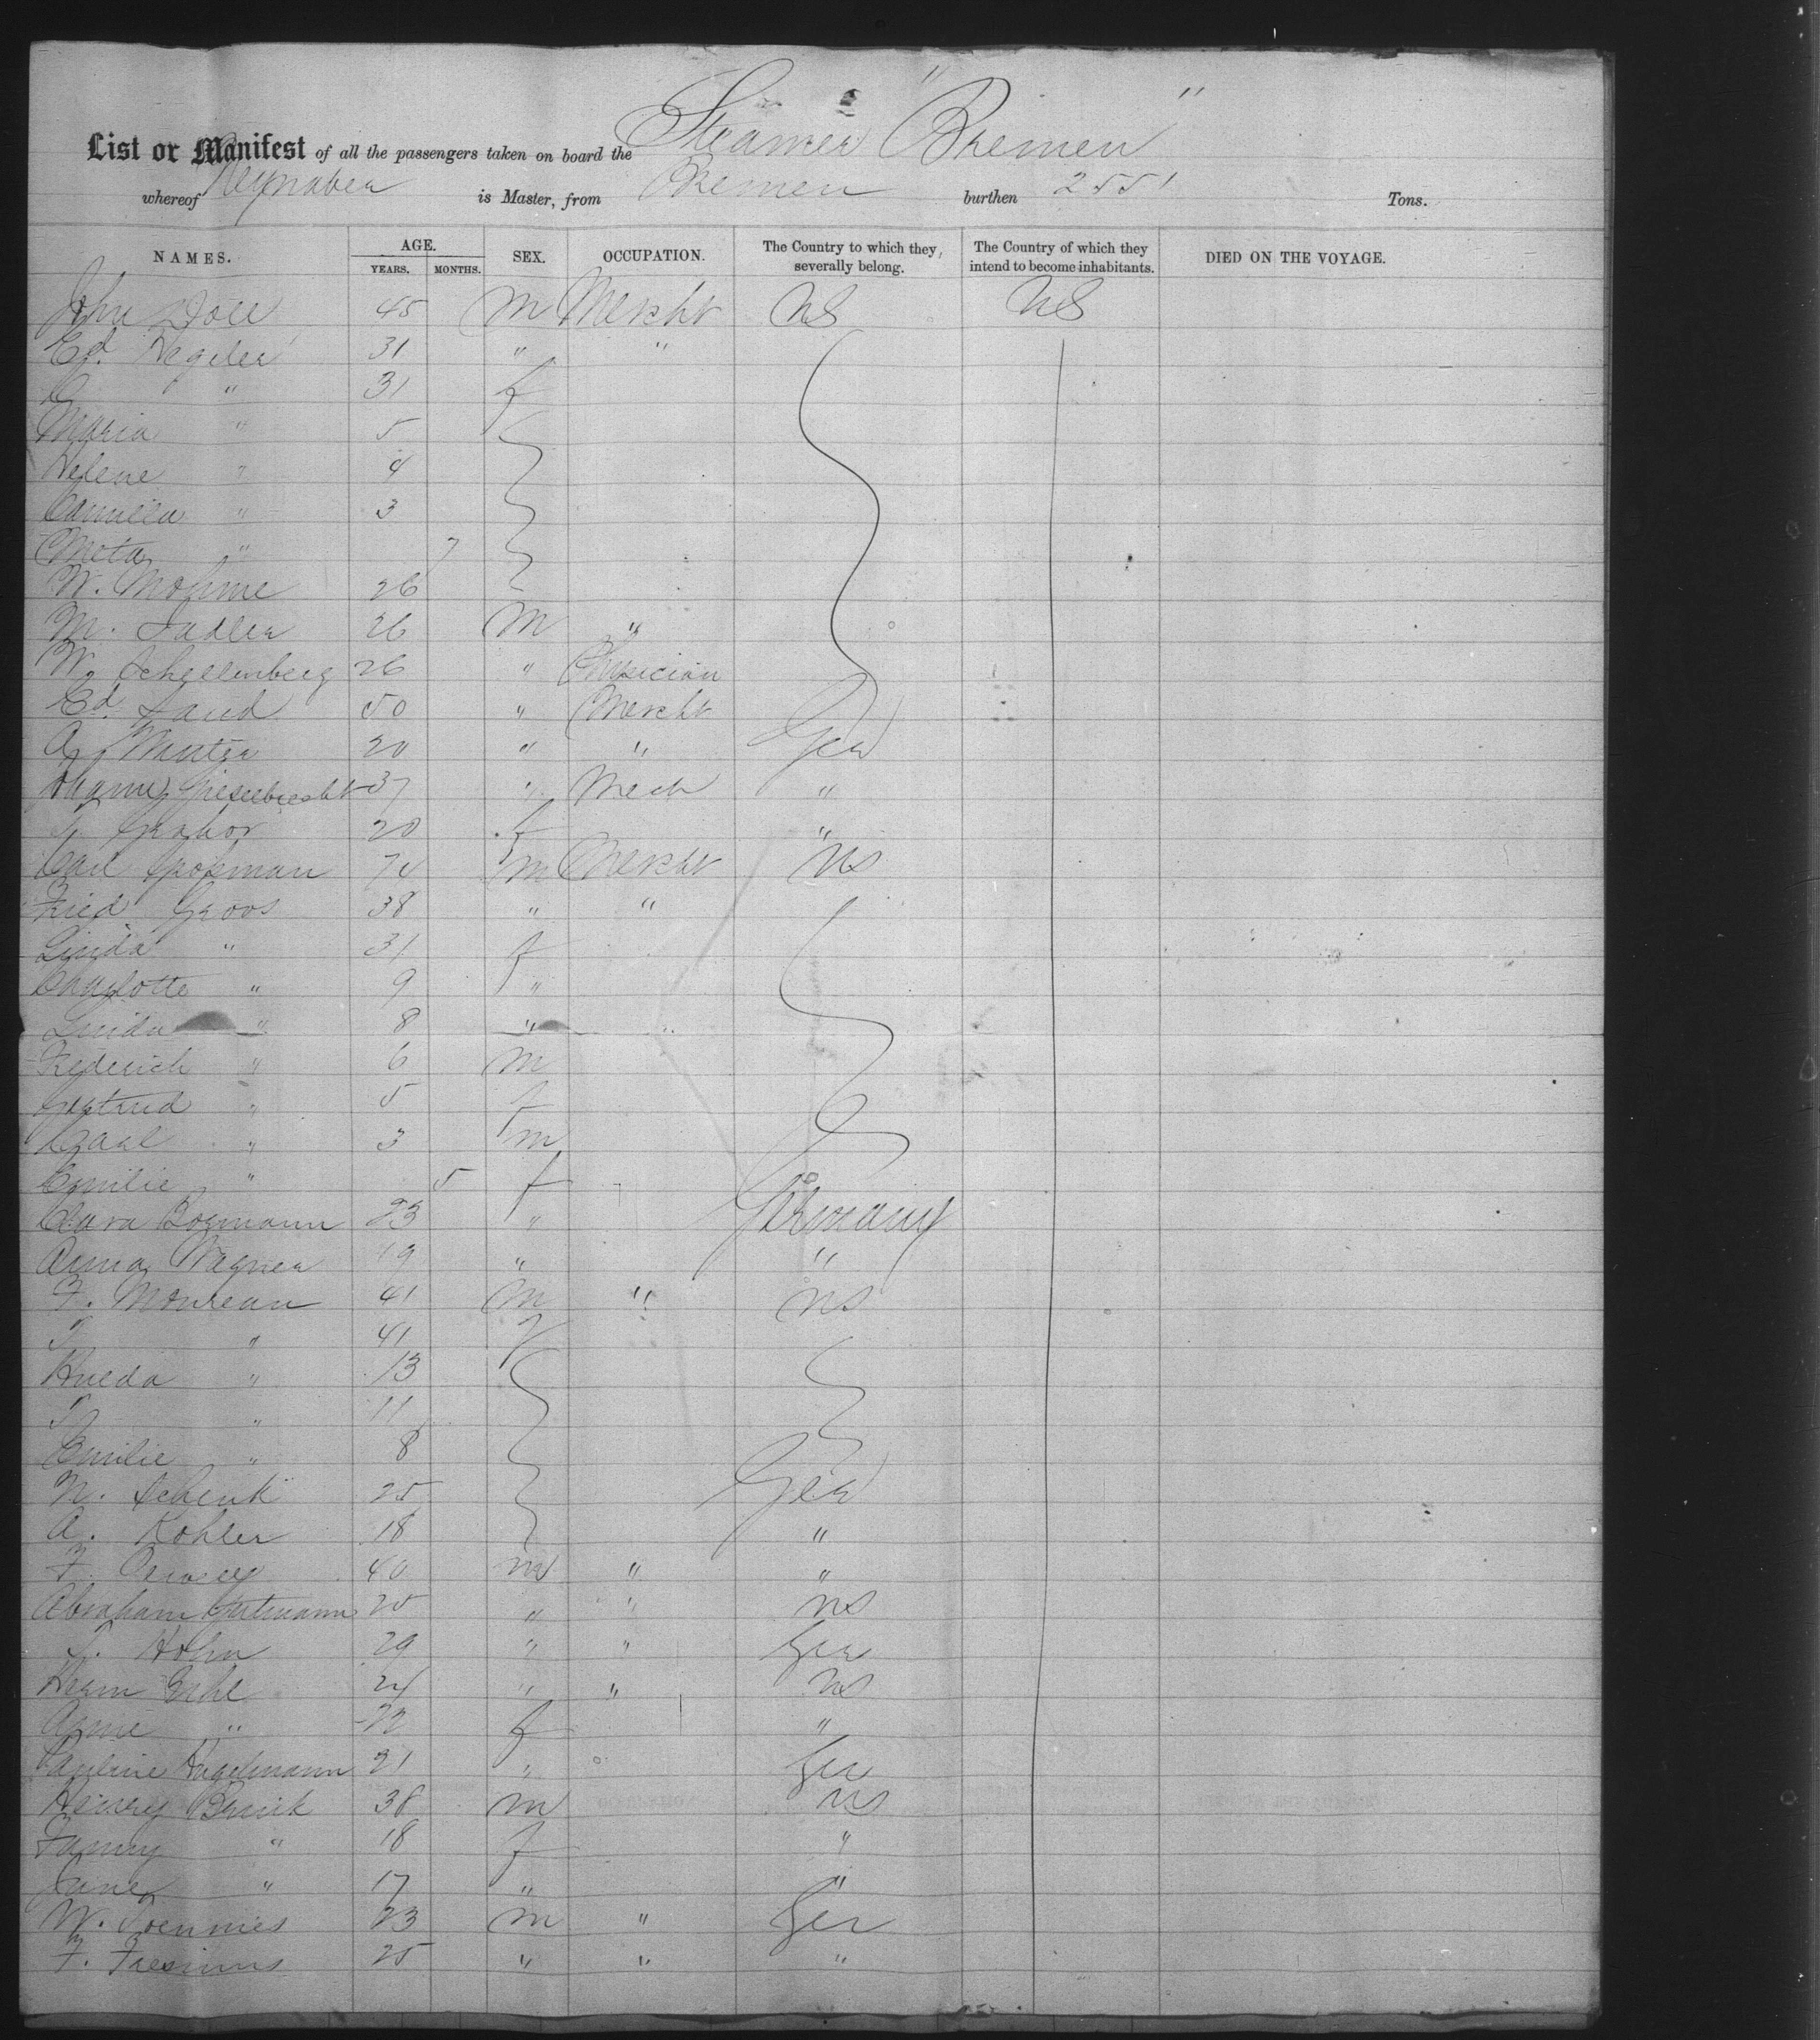 Steamer "Bremen"
List or Manifest of all the passengers taken on board the
whereof Neynaber is Master, from Bremen burthen 2551 Tons.
NAMES. AGE. YEARS. MONTHS. SEX. OCCUPATION. The Country to which they severally belong. The Country of which they intend to become inhabitants. DIED ON THE VOYAGE.
John 45 m Mercht US US
Ed. Hegeler 31 " "
C " 31 f
Maria " 5
Helene " 4
Camilla " 3
Meta " 7
W. Mohme 26
M. Sadler 26 m "
W. Schellenberg 26 " Physician
Ed. Sand 50 " Mercht
A. 20 " " Ger
Johann Gieselbrecht 37 " Mech "
G. Grabor 20 f "
Carl Grosman 74 m Mercht US
Fried Groos 38 " "
Linda " 31 f
Charlotte " 9 "
Linda " 8 " "
Frederich " 6 m
Gertrud " 5 f
Carl " 3 m
Emilie " 5 f
Clara Bormann 23 " Germany
Anna Wagner 19 " "
F. Moureau 41 m " US
" 41 f
" 13
" 11
Emilie " 8
N. Schenk 25 Ger
A. Kohler 18 "
F. 40 m " "
Abraham Gutmann 25 " " US
Hohn 29 " " Ger
Herm 24 " " US
Anne " 22 f "
Pauline Hagelmann 21 " Ger
Henry 38 m US
Fanny " 18 f "
Jane " 17 " "
W. Toennies 23 m " Ger
F. Fresenius 25 " " "